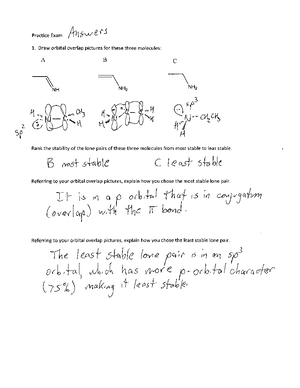 Practice Exam Answers
1. Draw orbital overlap pictures for these three molecules:
A B C
NH NH₂ NH₂
sp² H H N CH₃ H H N H sp³ N CH₂CH₃ H H
Rank the stability of the lone pairs of these three molecules from most stable to least stable.
B most stable C least stable
Referring to your orbital overlap pictures, explain how you chose the most stable lone pair.
It is in a p orbital that is in conjugation
(overlap) with the π bond.
Referring to your orbital overlap pictures, explain how you chose the least stable lone pair.
The least stable lone pair is in an sp³
orbital, which has more p-orbital character
(75%) making it least stable.